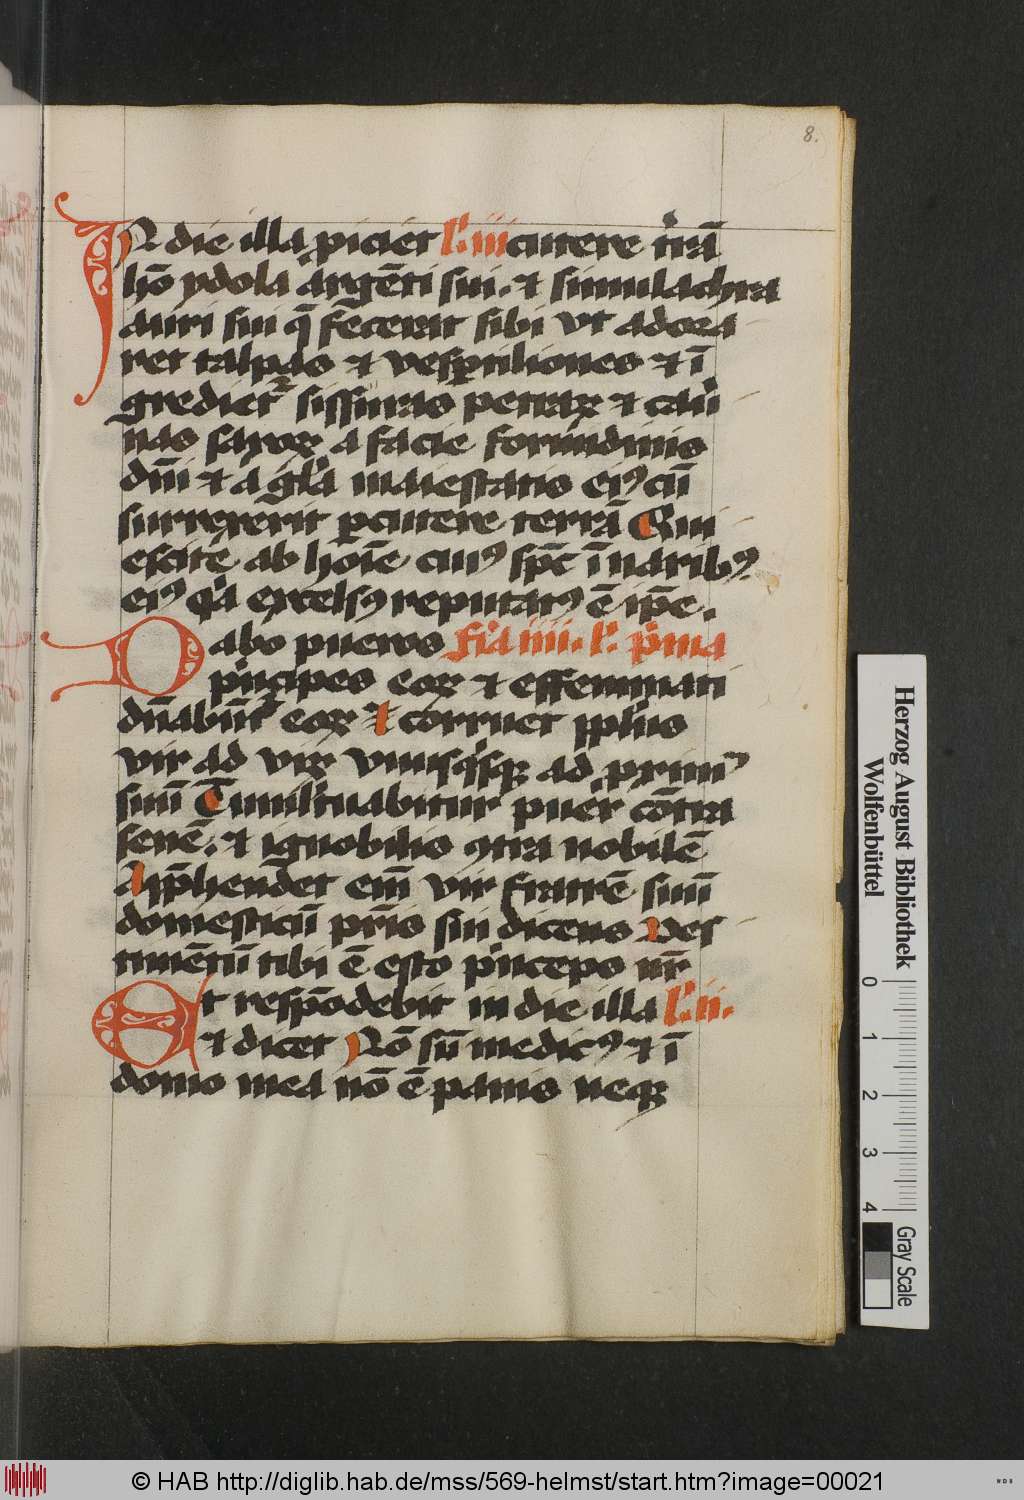 8.
In die illa piciet l' iii cutere t'rā
hō ydola argēti sui. et simulachra
auri sui q̄ fecerat sibi vt adora
ret talpas et vesp̱tiliones et ī
grediet᷑ fissuras petraꝝ et cau'
nas saxoꝝ a facie formidinis
dn̄i et a gl'a maiestatis eiꝰ cū
surrexerit ꝑcutere terrā Qui
escite ab hoīe cuiꝰ sp̄c ī naribꝰ
eiꝰ q'a excelsꝰ reputatꝰ ē ip̄e.
Dabo pueros fr'a iiii. l' p'ma
p'ncipes eoꝝ et effeminati
dn̄abūt᷑ eoꝝ et corruet pplu's
vir ad viꝝ vnusq'sqꝫ ad ꝓximū
suū Tumultuabitur puer cōtra
senē. et ignobilis ꝯtra nobilē
App̄hendet em̄ vir fratrē suū
domesticū pr̄is sui dicens Ves
timētū tibi ē esto p'nceps nr̄
Et respōdebit in die illa l' ii.
et dicet Nō sū medicꝰ et ī
domo mea nō ē panis neqꝫ
Herzog August Bibliothek
Wolfenbüttel
0 1 2 3 4
Gray Scale
© HAB http://diglib.hab.de/mss/569-helmst/start.htm?image=00021